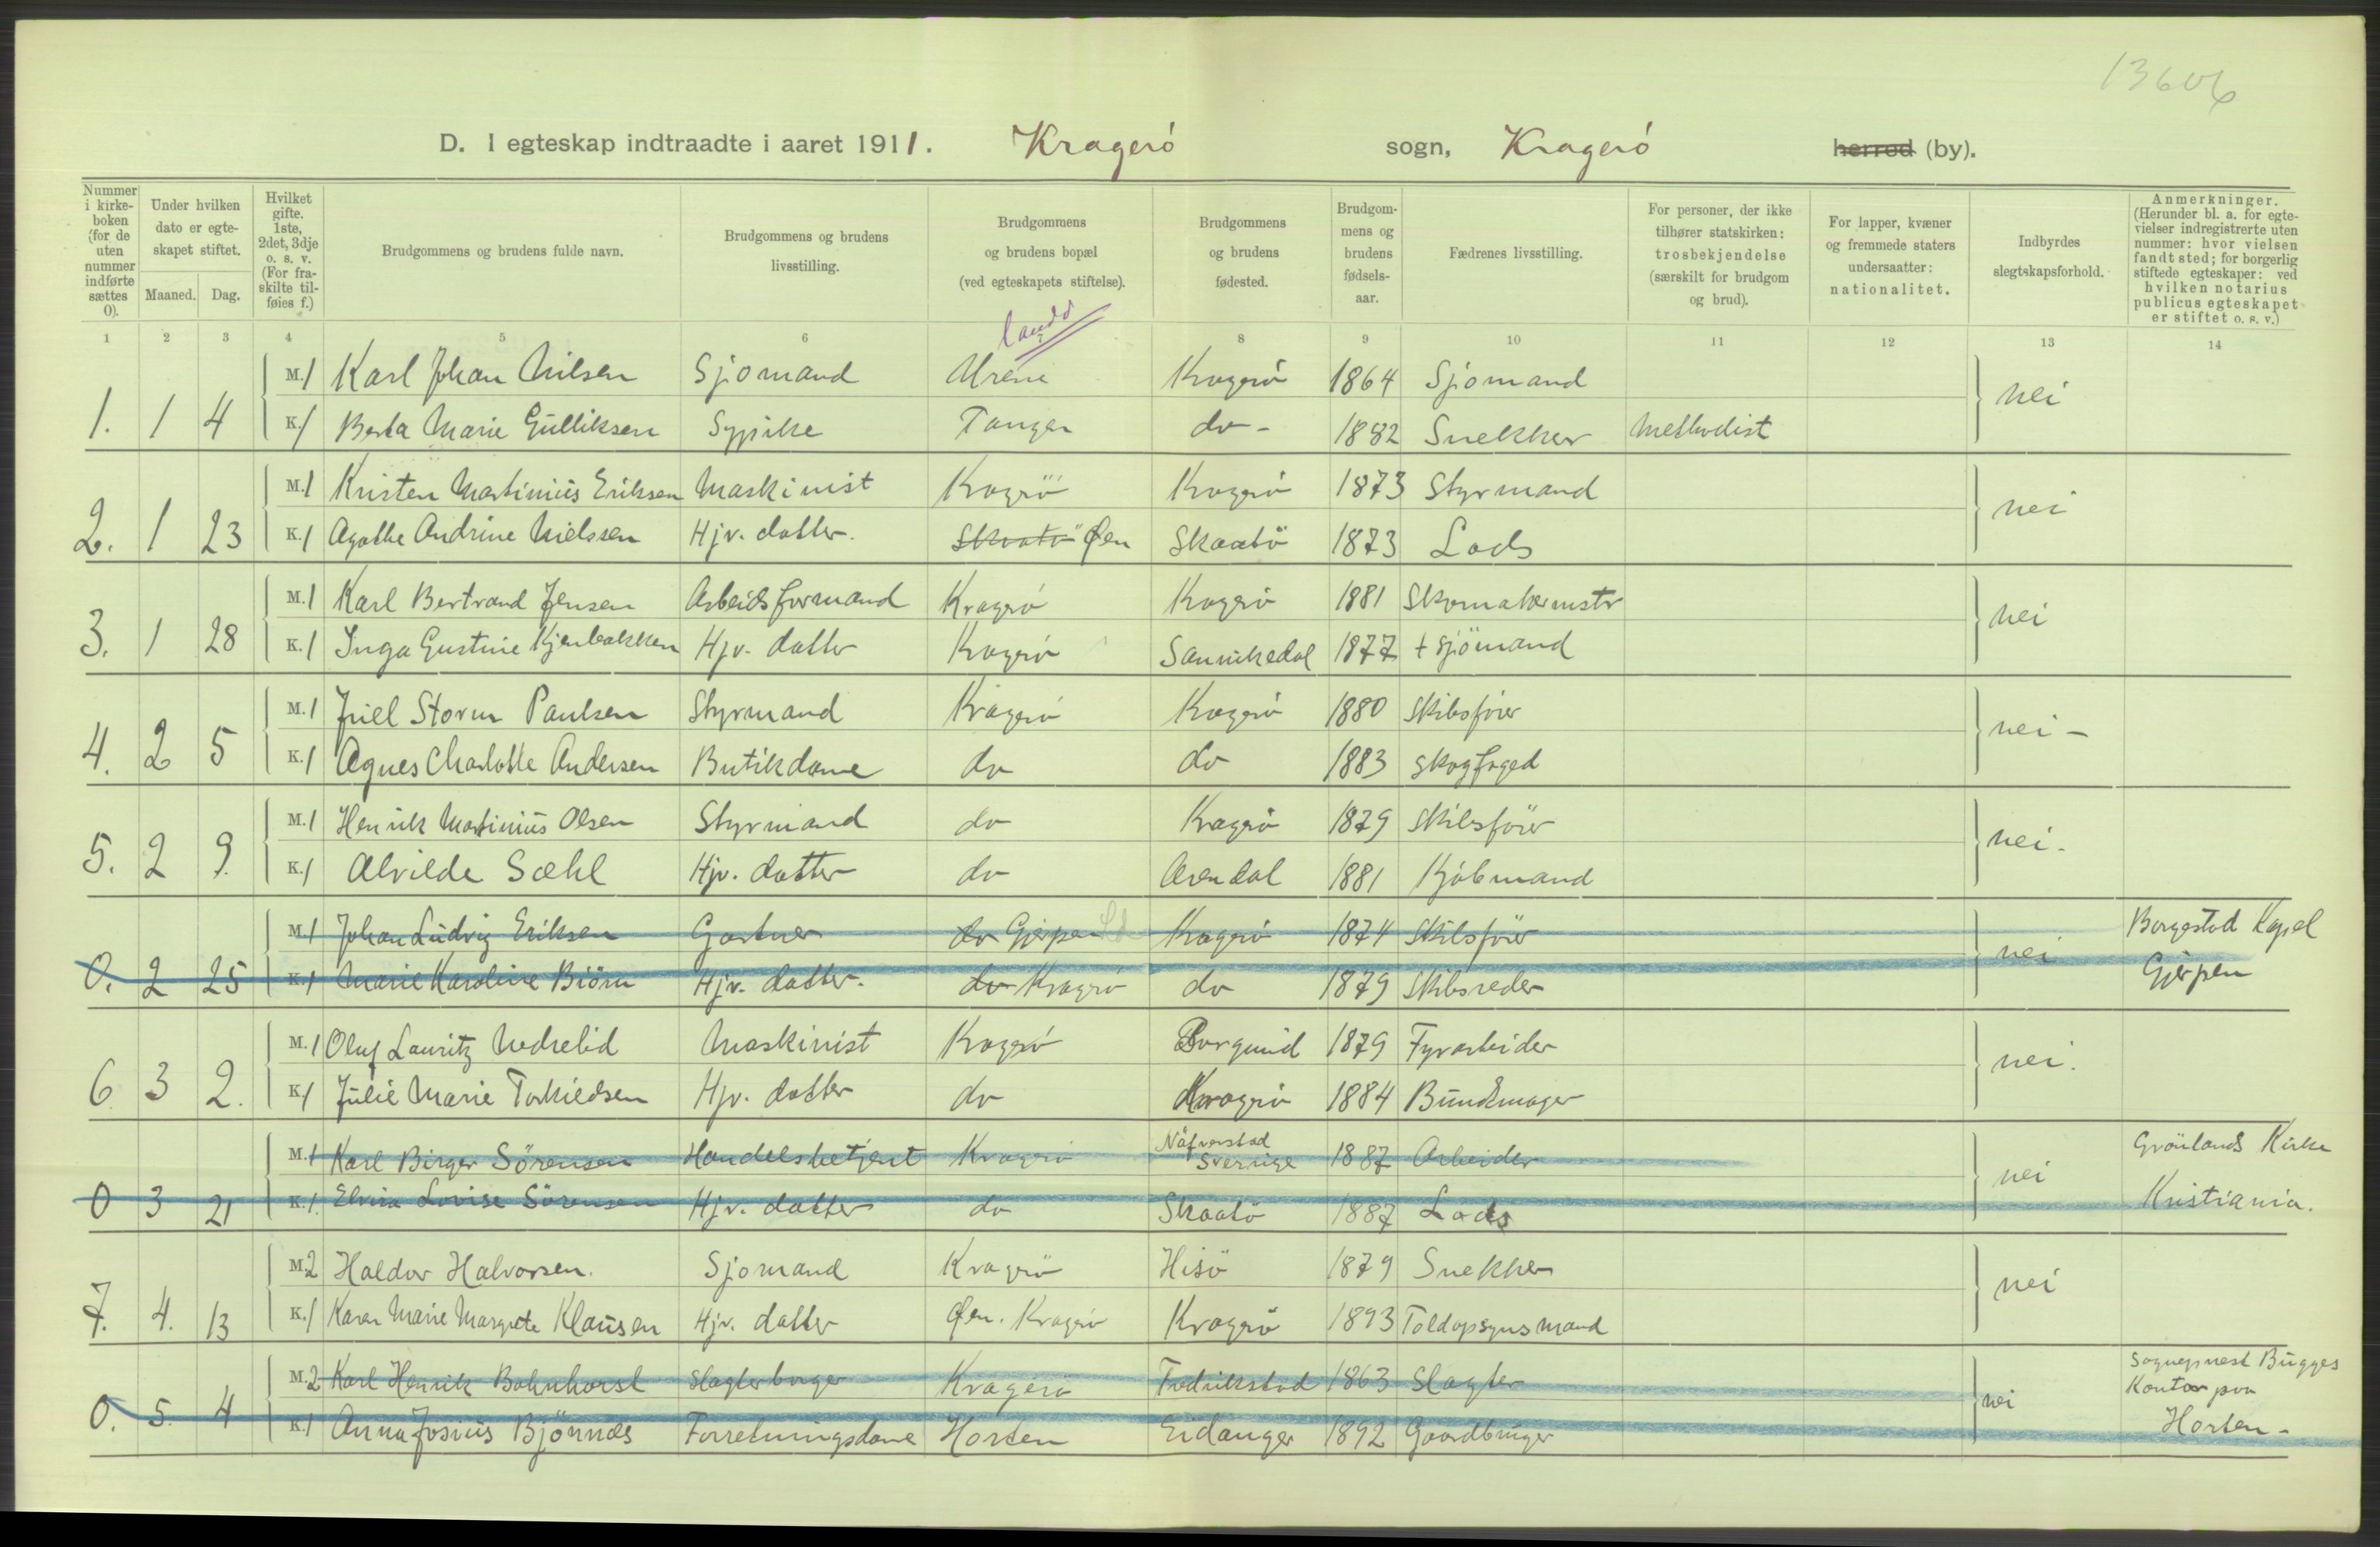 13606
D. I egteskap indtraadte i aaret 1911. Kragerö sogn, Kragerö herred (by).
Nummer i kirke-boken (for de uten nummer indførte sættes 0). Under hvilken dato er egte-skapet stiftet. Maaned. Dag. Hvilket gifte. 1ste, 2det, 3dje o. s. v. (For fra-skilte til-føies f.) Brudgommens og brudens fulde navn. Brudgommens og brudens livsstilling. Brudgommens og brudens bopæl (ved egteskapets stiftelse). Brudgommens og brudens fødested. Brudgom-mens og brudens fødsels-aar. Fædrenes livsstilling. For personer, der ikke tilhører statskirken: trosbekjendelse (særskilt for brudgom og brud). For lapper, kvæner og fremmede staters undersaatter: nationalitet. Indbyrdes slegtskapsforhold. Anmerkninger. (Herunder bl. a. for egte-vielser indregistrerte uten nummer: hvor vielsen fandt sted; for borgerlig stiftede egteskaper: ved hvilken notarius publicus egteskapet er stiftet o. s. v.)
1 2 3 4 5 6 8 9 10 11 12 13 14
M. 1 Karl Johan Nilsen Sjömand Kragerö 1864 Sjömand
1. 1 4 K. 1 Berta Marie Gulliksen Sypike Tangen do - 1882 Snekker Methodist nei
M. 1 Kristen Martinius Eriksen Maskinist Kragerö Kragerö 1873 Styrmand
2. 1 23 K. 1 Agathe Andrine Nielssen Hjv. datter. Skaatö Øen Skaatö 1873 Lods nei
M. 1 Karl Bertrand Jensen Arbeidsformand Kragerö Kragerö 1881 Skomakermstr
3. 1 28 K. 1 Inga Gustine Kjenbakken Hjv. datter Kragerö Sannikedal 1877 + sjömand nei
M. 1 Juel Storm Paulsen Styrmand Kragerö Kragerö 1880 Skibsförer
4. 2 5 K. 1 Agnes Charlotte Andersen Butikdame do do 1883 skogfoged nei -
M. 1 Henrik Martinius Olsen Styrmand do Kragerö 1879 Skibsförer
5. 2 9. K. 1 Alvilde Sæhl Hjv. datter do Arendal 1881 Kjöbmand nei.
M. 1 Johan Ludvig Eriksen Gartner do Gjerpen Kragerö 1874 Skibsförer Borgestad Kapel
0. 2 25 K. 1 Marie Karoline Biörn Hjv. datter. do Kragerö do 1879 Skibsreder nei Gjerpen
M. 1 Oluf Lauritz Nedrelid Maskinist Kragerö Borgund 1879 Fyrarbeider
6 3 2. K. 1 Julie Marie Torkildsen Hjv. datter do Kragerö 1884 Bundtmager nei.
M. 1 Karl Birger Sörensen Handelsbetjent Kragerö Näfverstad Sverrige 1887 Arbeider Grönlands Kirke
0 3 21 K. 1. Elvira Lovise Sörensen Hjv. datter do Skaatö 1887 Lods nei Kristiania.
M. 2 Haldor Halvorsen. Sjömand Kragerö Hisö 1879 Snekker
7. 4. 13 K. 1 Karen Marie Margrete Klausen Hjv. datter Øen. Kragerö Kragerö 1893 Toldopsynsmand nei
M. 2 Karl Henrik Bohnhorst slagterborger Kragerö Fredrikstad 1863 Slagter Sogneprest Bugges Kontor paa
0. 5. 4 K. 1 Anna Josius Bjönnes Forretningsdame Horten Eidanger 1892 Gaardbruger nei Horten -